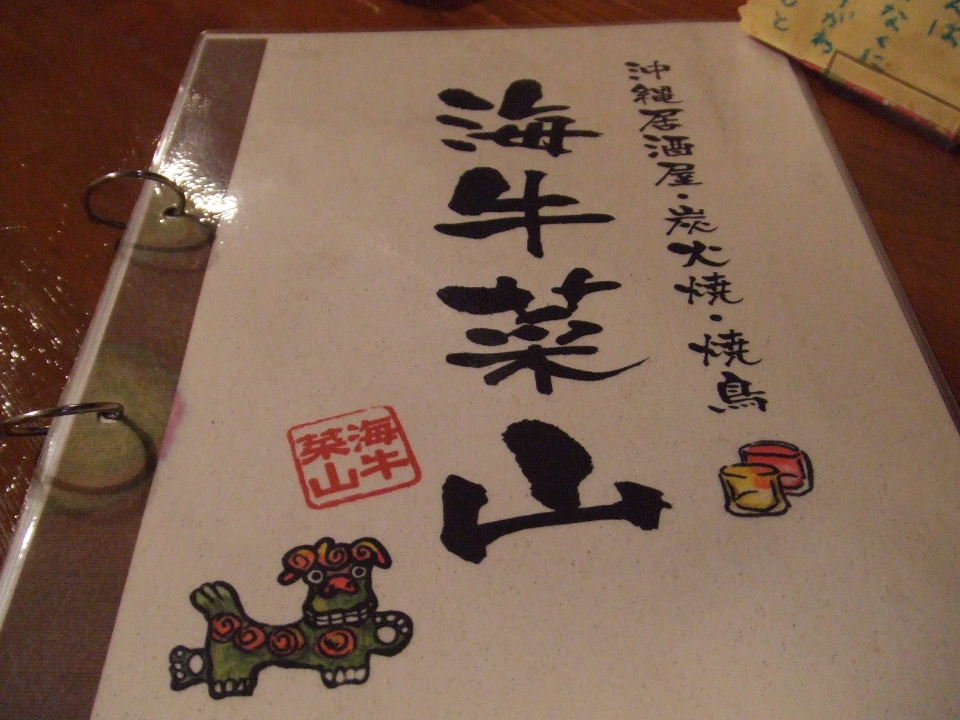 沖縄居酒屋・炭火焼・焼鳥
海牛菜山
海牛
菜山